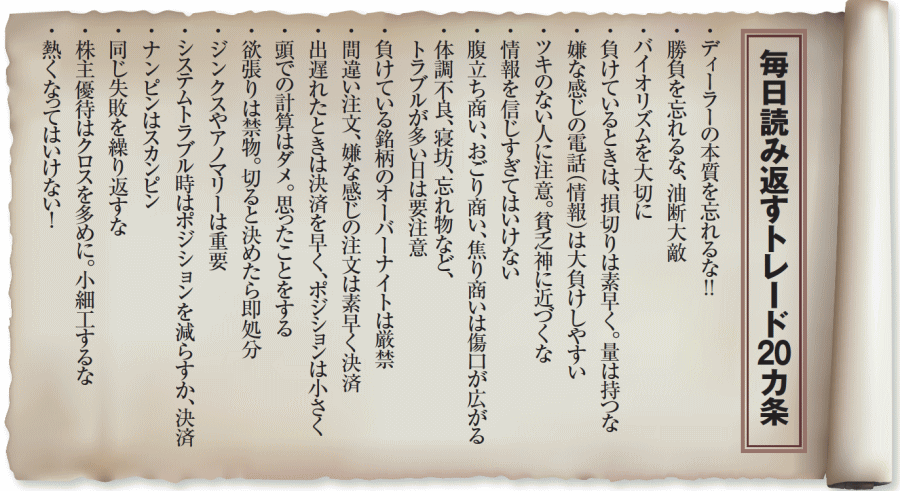 毎日読み返すトレード20カ条
・ディーラーの本質を忘れるな!!
・勝負を忘れるな、油断大敵
・バイオリズムを大切に
・負けているときは、損切りは素早く。量は持つな
・嫌な感じの電話(情報)は大負けしやすい
・ツキのない人に注意。貧乏神に近づくな
・情報を信じすぎてはいけない
・腹立ち商い、おごり商い、焦り商いは傷口が広がる
・体調不良、寝坊、忘れ物など、
トラブルが多い日は要注意
・負けている銘柄のオーバーナイトは厳禁
・間違い注文、嫌な感じの注文は素早く決済
・出遅れたときは決済を早く、ポジションは小さく
・頭での計算はダメ。思ったことをする
・欲張りは禁物。切ると決めたら即処分
・ジンクスやアノマリーは重要
・システムトラブル時はポジションを減らすか、決済
・ナンピンはスカンピン
・同じ失敗を繰り返すな
・株主優待はクロスを多めに。小細工するな
・熱くなってはいけない!